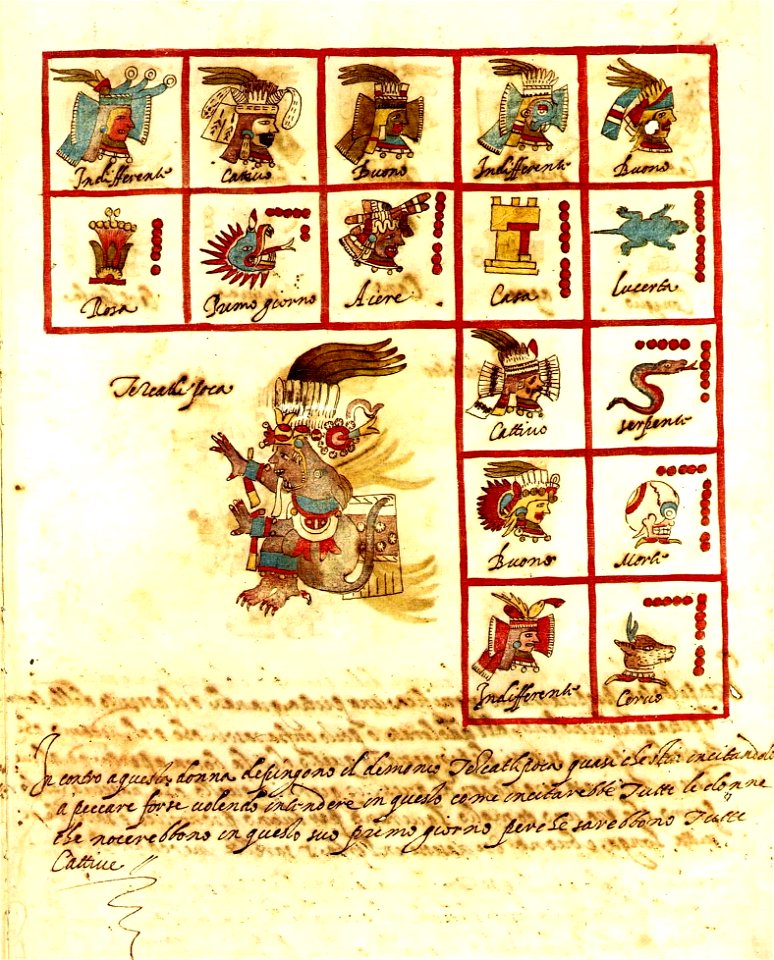 Indifferente
Cativo
Buono
Indifferente
Buono
Rosa
Primo giorno
Aiere
Casa
Lucerta
Tezcatlipoca
Cattivo
serpente
Buono
Morte
Indifferente
Cervo
In contro a questa donna depingono il demonio Tezcatlipoca quasi che stia incitandolo
a peccare forse volendo intendere in questo come incitarebbe Tutte le donne
che nocerebbono in questo suo primo giorno perche sarebbono Tutte
Cattive